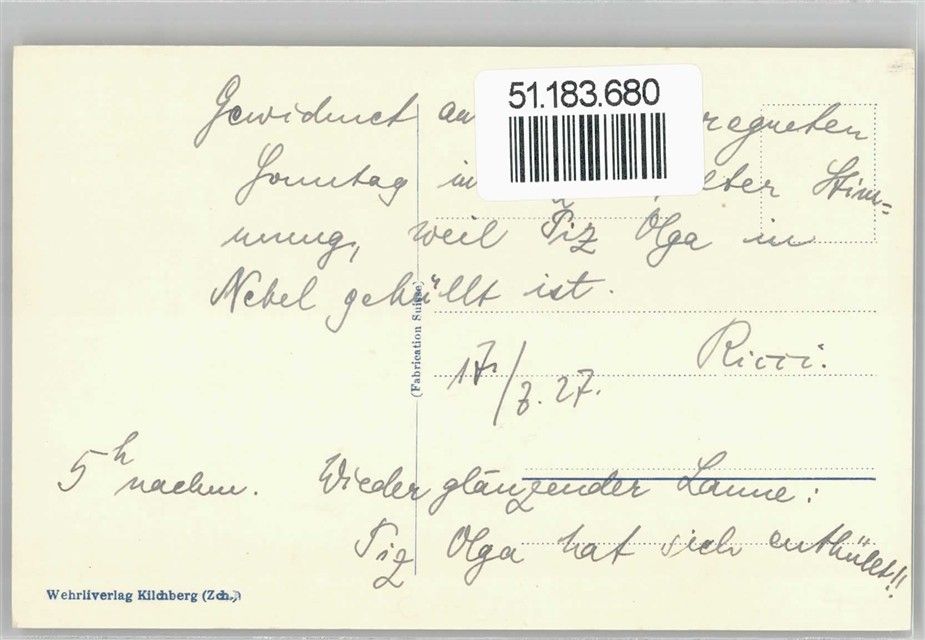 51.183.680
Gewidmet an regneten
Sonntag in elter Stim=
mung, weil Piz Olga in
Nebel gehüllt ist.
(Fabrication Suisse)
17./7. 27. Ricci.
5h nachm. Wieder glänzender Laune:
Piz Olga hat sich enthüllt!!
Wehrliverlag Kilchberg (Zch.)